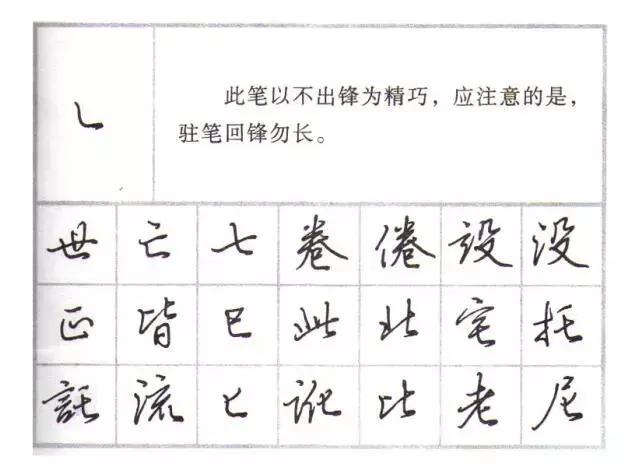 乚
此笔以不出锋为精巧，应注意的是，
驻笔回锋勿长。
世 亡 七 卷 倦 設 没
正 皆 巳 此 北 宅 托
託 流 匕 訛 比 老 尼